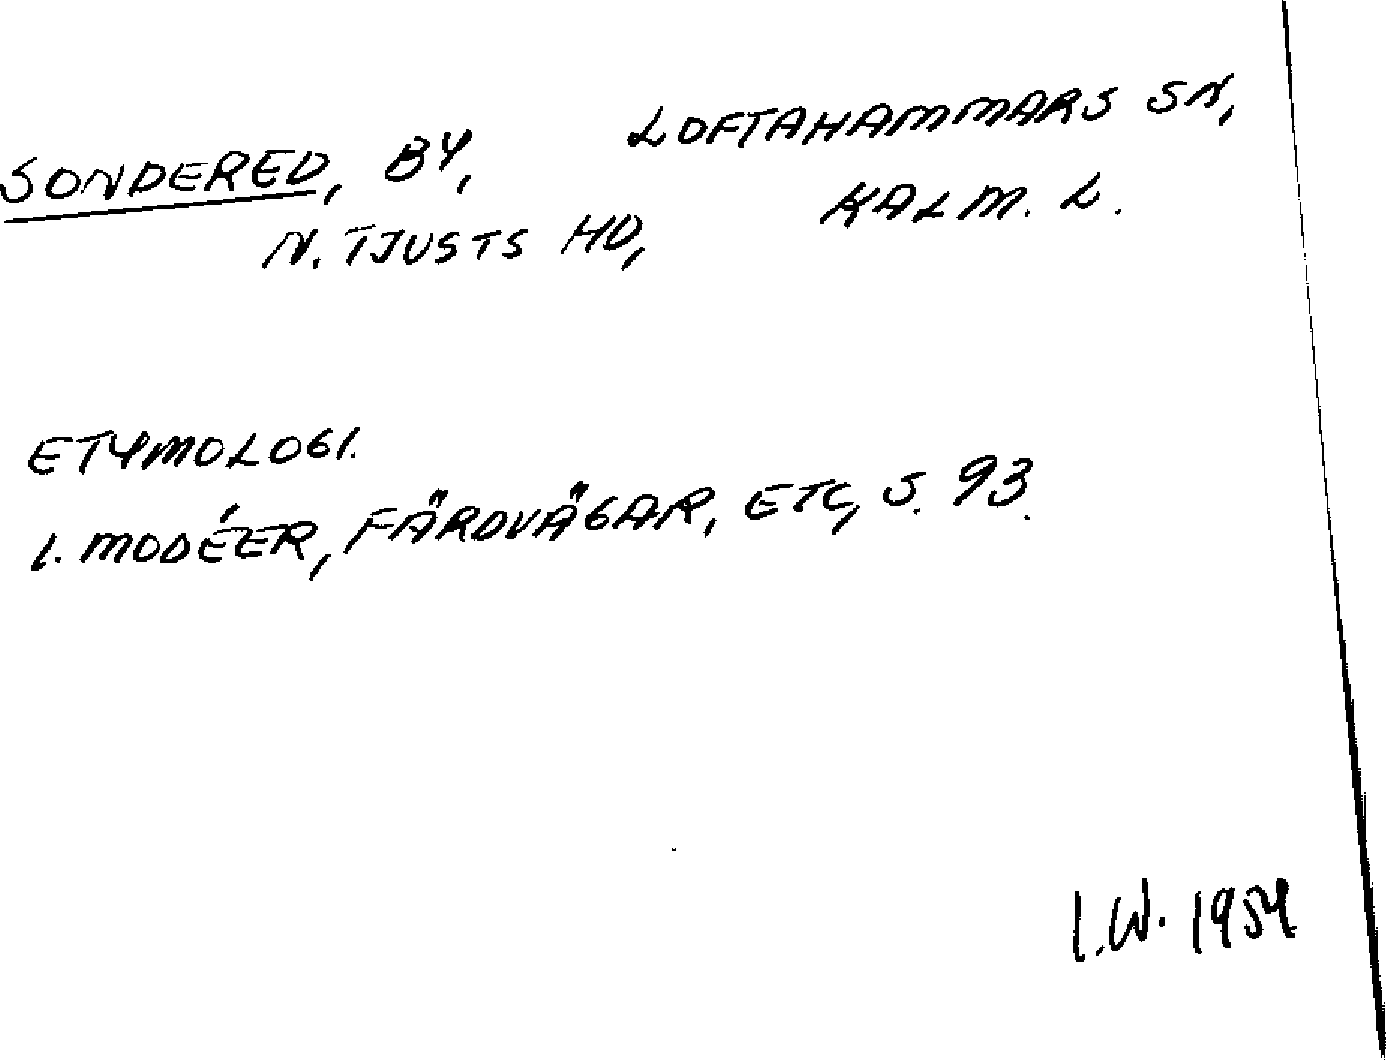 SONDERED, BY, LOFTAHAMMARS SN,
N. TJUSTS HD, KALM. L.
ETYMOLOGI.
I. MODÉER, FÄRDVÄGAR, ETC, S. 93.
I.W. 1954